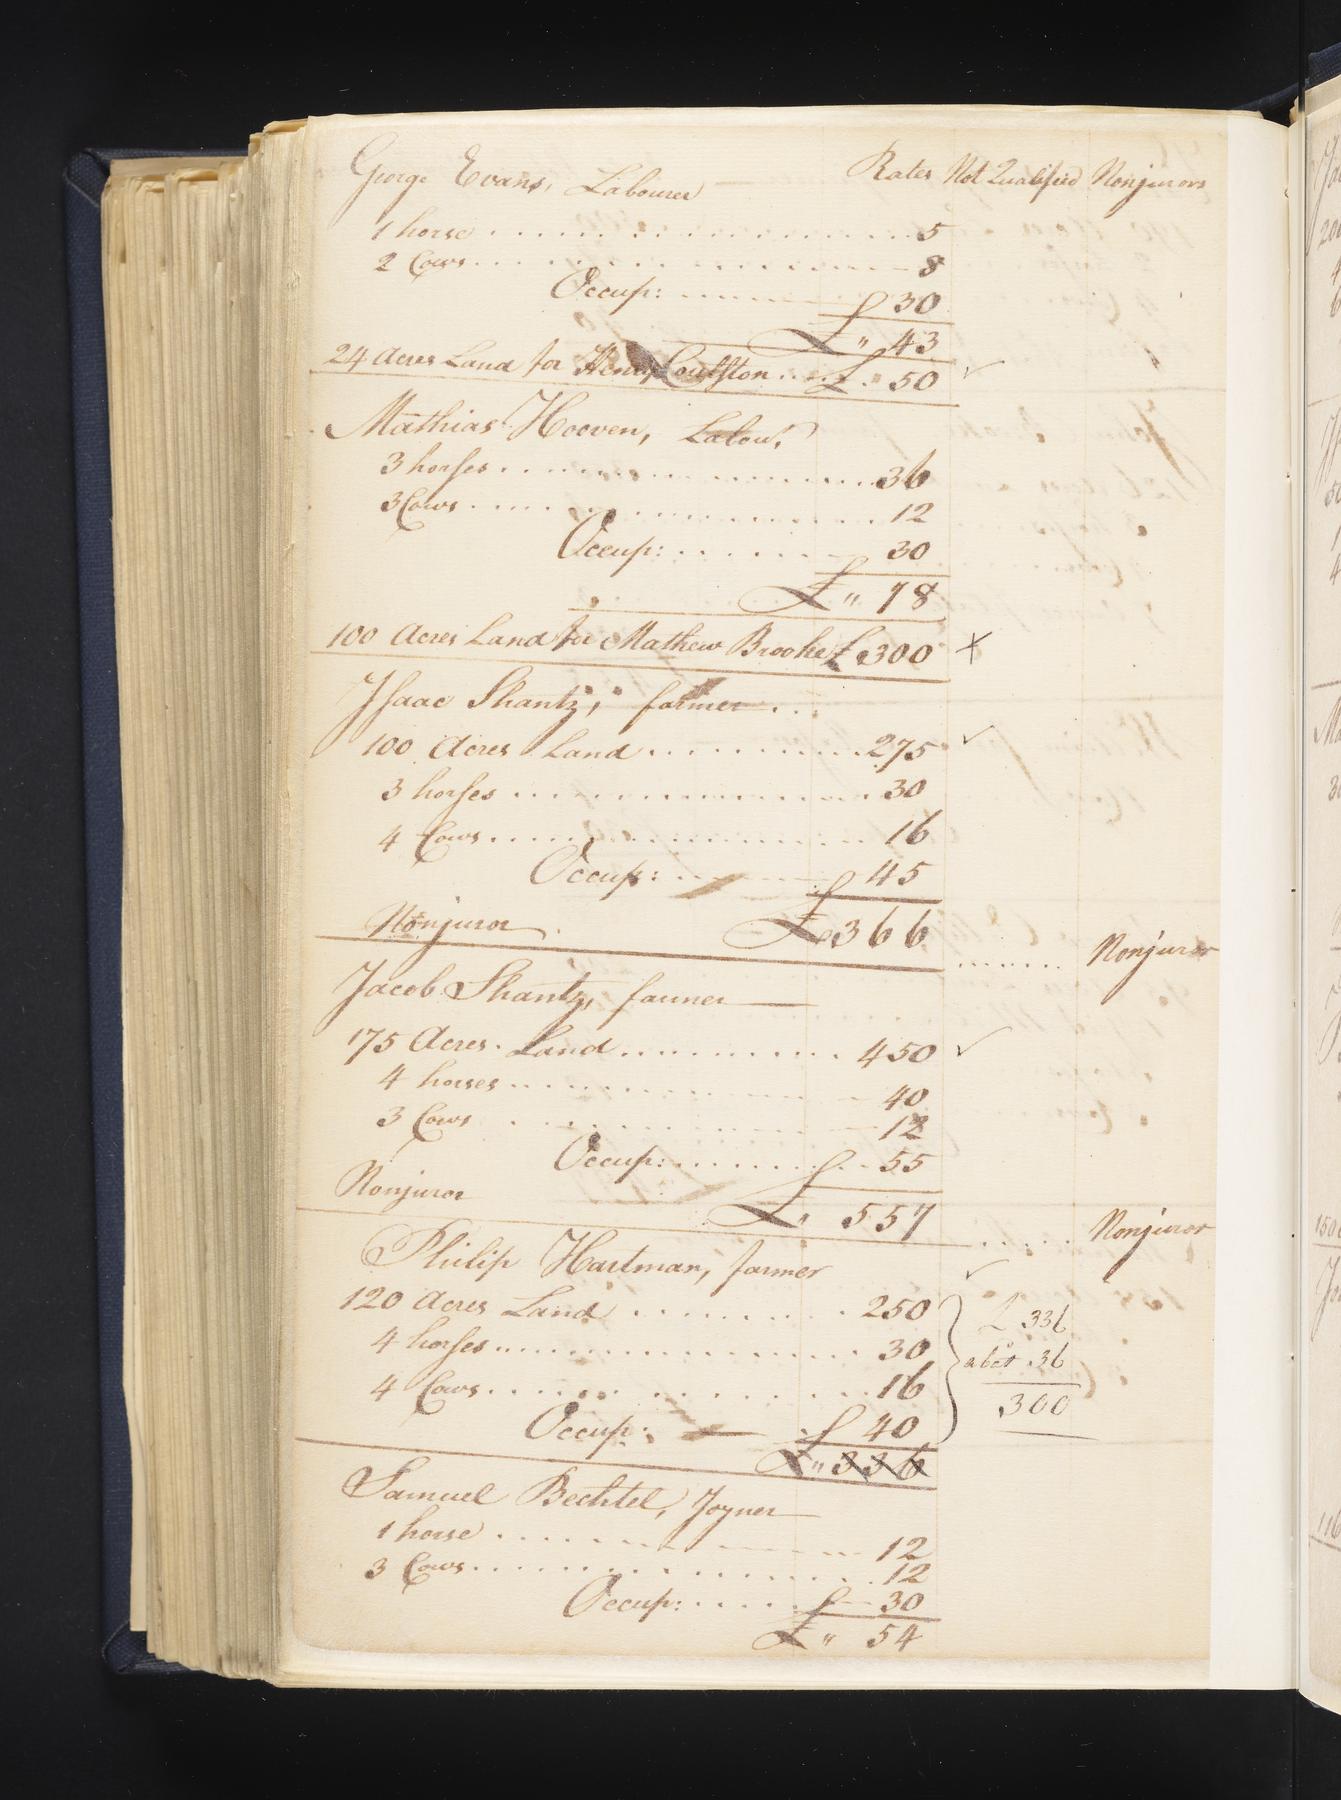 George Evans, Labourer Rates Not Qualified Nonjurors
1 horse 5
2 Cows 8
Occup: 30
£ " 43
24 Acres Land for Henry Coulston £ " 50 ✓
Mathias Hooven, Labou.r
3 horses 36
3 Cows 12
Occup: 30
£ " 78
100 Acres Land for Mathew Brooke £ 300 X
Isaac Shantz, farmer
100 Acres Land 275 ✓
3 horses 30
4 Cows 16
Occup: 45
£ 366
Nonjuror Nonjuror
Jacob Shantz, farmer
175 Acres Land 450 ✓
4 horses 40
3 Cows 12
Occup: 55
Nonjuror £ " 557 Nonjuror
Philip Hartman, farmer ✓
120 Acres Land 250 £ 336
4 horses 30 abat 36
4 Cows 16 300
Occup: 40
£ " 336
Samuel Bechtel, Joyner
1 horse 12
3 Cows 12
Occup: 30
£ " 54